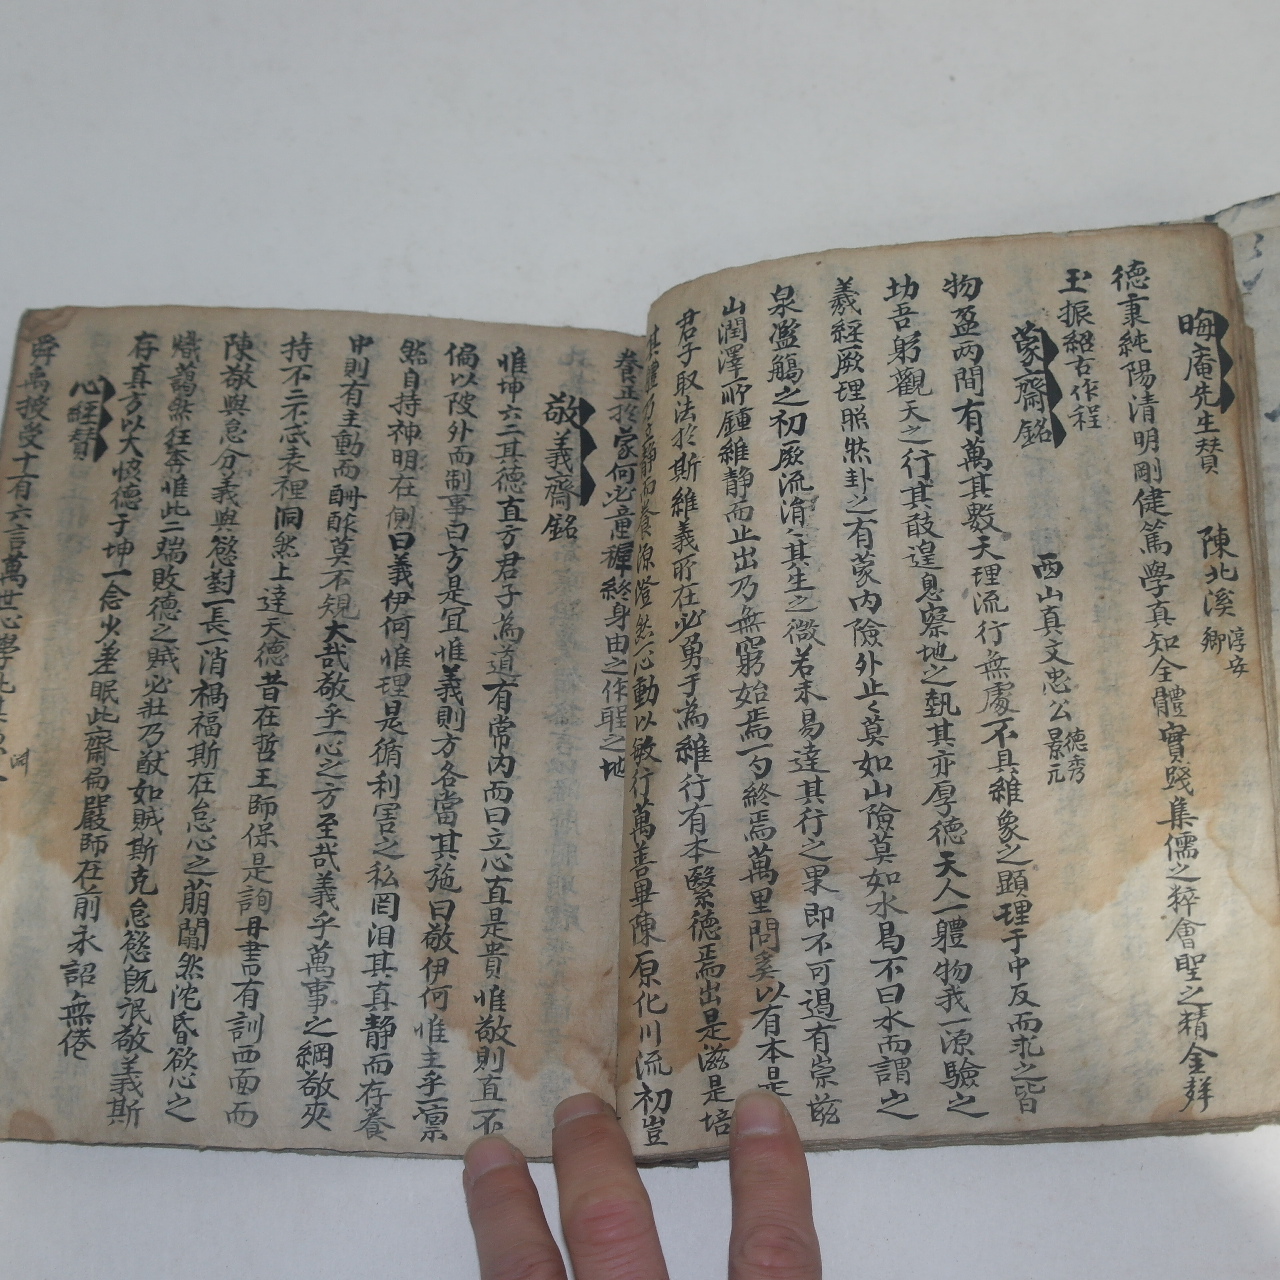 晦庵先生贊 陳北溪 淳安卿
德秉純陽清明剛健篤學真知全體實踐集儒之粹會聖之精金聲
玉振紹古作程
蒙齋銘 西山真文忠公 德秀景元
物盈两間有萬其數天理流行無處不具維象之顯理于中反而求之皆
切吾躬觀天之行其敢遑息察地之埶其亦厚德天人一體物我一源驗之
羲經厥理照然卦之有蒙内險外止止莫如山險莫如水曷不曰水而謂之
泉濫觴之初厥流涓涓其生之微若未易達其行之果即不可遏有崇玆
山潤澤所鍾維静而止出乃無窮始焉一勺終焉萬里問奚以有本是
君子取法扵斯維義所在必勇于為維行有本繄德焉出是滋是培
其體乃立静而養源澄然一心動以敏行萬善畢陳原化川流初豈
養正扵蒙何必童穉終身由之作聖之地
敬義齋銘
惟坤六二其德直方君子為道有常内而曰立心直是貴惟敬則直不
偏以陂外而制事曰方是宜惟義則方各當其施曰敬伊何惟主乎一禀
然自持神明在側曰義伊何惟理是循利害之私罔汨其真静而存養
中則有主動而酬酢莫不規大哉敬乎一心之方至哉義乎萬事之綱敬夾
持不二不忒表裡洞然上達天德昔在哲王師保是詢丹書有訓西面而
陳敬與怠分義與慾對一長一消禍福斯在怠心之萠闒然沱昏欲心之
熾蕩然狂奔惟此二端敗德之賊必壮乃猷如賊斯克怠慾既泯敬義斯
存真方以大恢德于坤一念少差眠此齋扁嚴師在前永詔無倦
心経贊
舜禹授受十有六言萬世心學此其